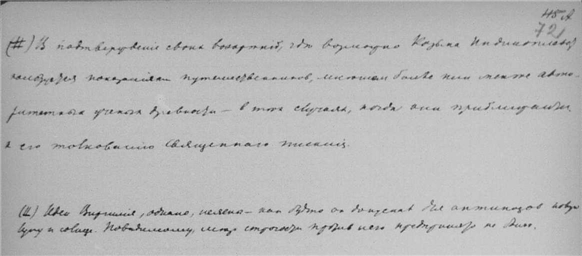 48 А
72
(#) В подтверждение своих воззрений, где возможно Козьма Индикоплевст
пользуется показаниями путешественников, мнениями более или менее авто-
ритетных ученых древности — в тех случаях, когда они приближались
к его толкованию священного писания.
(Ш) Идеи Виргилия, однако, неясны — как будто он допускал для антиподов новую
луну и солнце. Повидимому, мер строгости против него предпринято не было.